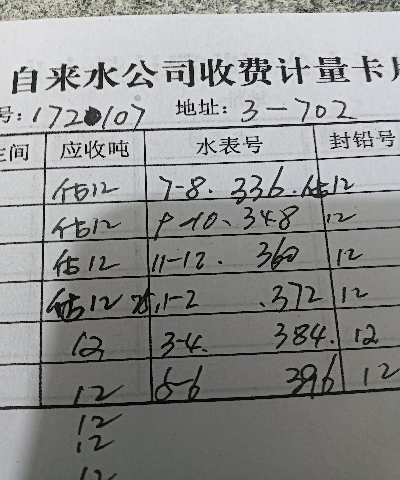 自来水公司收费计量卡片
号:1720107 地址:3-702
间 应收吨 水表号 封铅号
估12 7-8. 336. 估12
估12 9-10、348 12
估12 11-12. 360 12
估12 25.1-2 .372 12
12 3-4. 384. 12
12 5-6 396 12
12
12
12